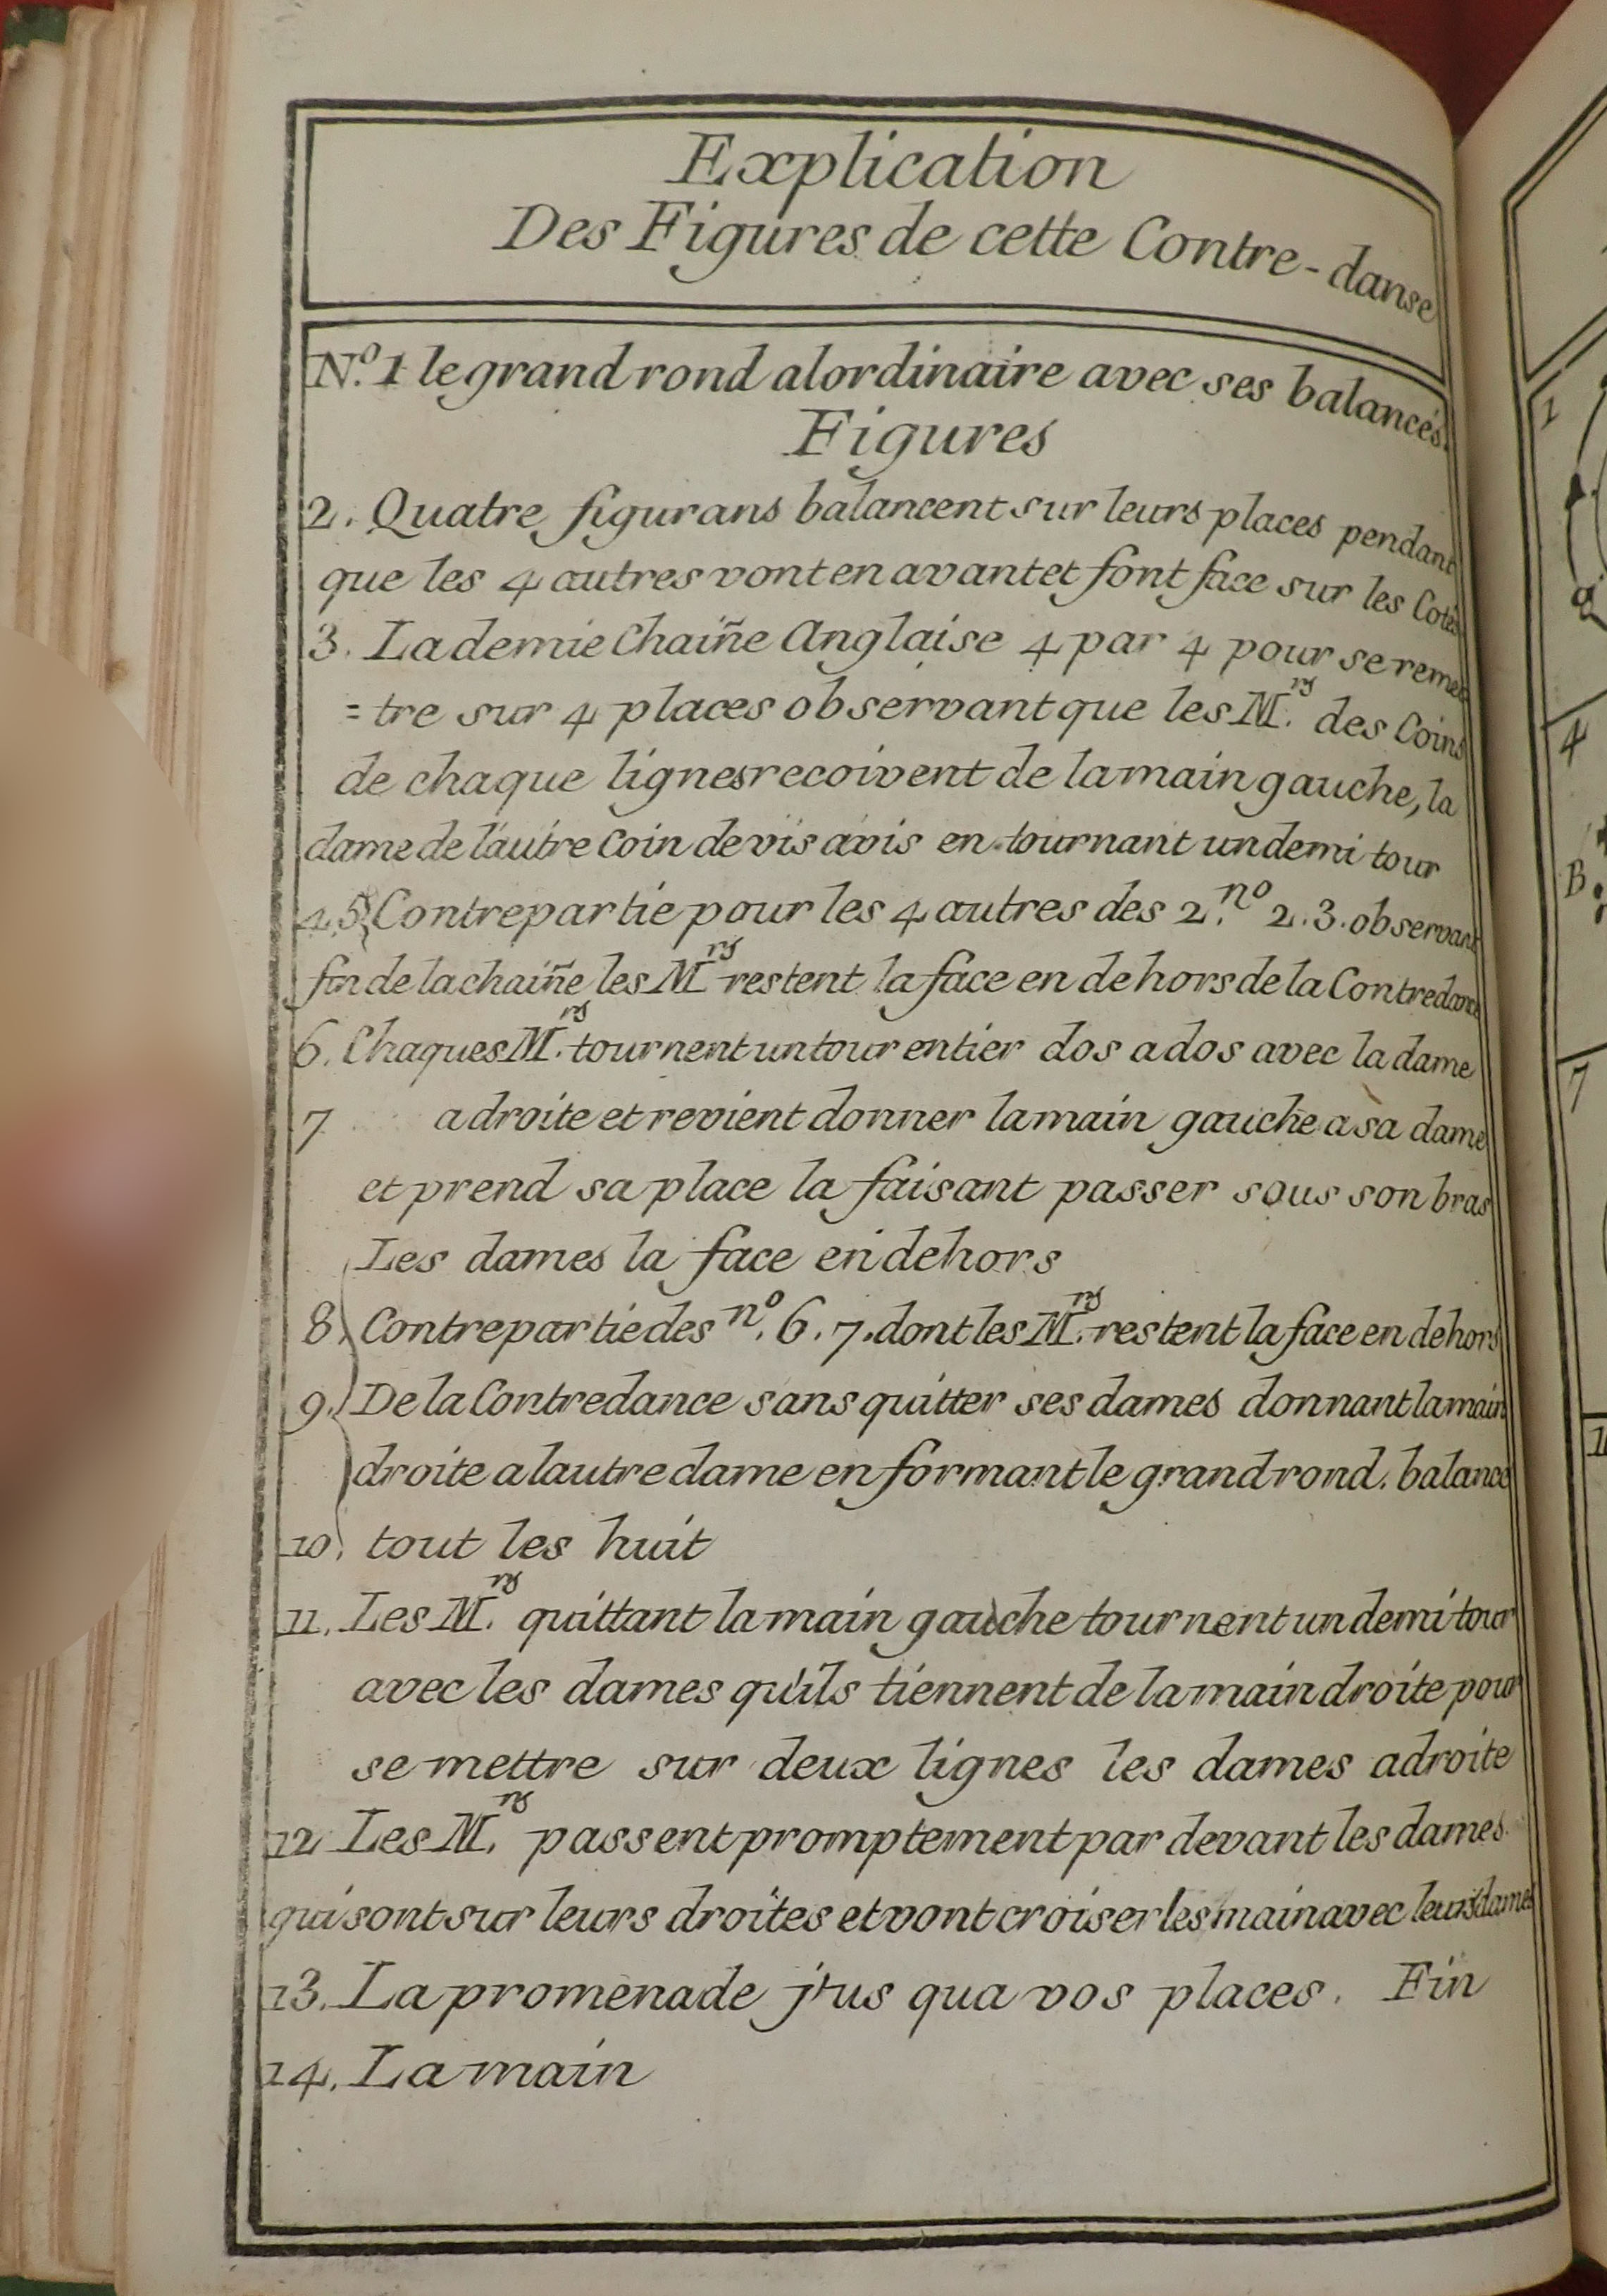 Explication
Des Figures de cette Contre-danse
N.º 1 le grand rond alordinaire avec ses balancés.
Figures
2. Quatre figurans balancent sur leurs places pendant
que les 4 autres vont en avant et font face sur les Cotés
3. La demie Chaiñe Anglaise 4 par 4 pour se remet
= tre sur 4 places observant que les M.rs des Coins
de chaque lignes recoivent de la main gauche, la
dame de láutre Coin de vis avis en tournant un demi tour
4. 5. Contrepartie pour les 4 autres des 2. nº 2. 3. observant
fin de la chaiñe les M.rs restent la face en dehors de la Contredance
6. Chaques M.rs tournent un tour entier dos a dos avec la dame
7 a droite et revient donner la main gauche a sa dame
et prend sa place la faisant passer sous son bras
Les dames la face en dehors
8. Contrepartie des nº. 6. 7. dont les M.rs restent la face en dehors
9. De la Contredance sans quitter ses dames donnant la main
droite a lautre dame en formant le grand rond. balance
10. tout les huit
11. Les M.rs quittant la main gauche tournent un demi tour
avec les dames qu'ils tiennent de la main droite pour
se mettre sur deux lignes les dames adroite
12 Les M.rs passent promptement par devant les dames
qui sont sur leurs droites et vont croiser les main avec leurs dames
13. La promenade j'us qua vos places. Fin
14. La main
1
4
B
7